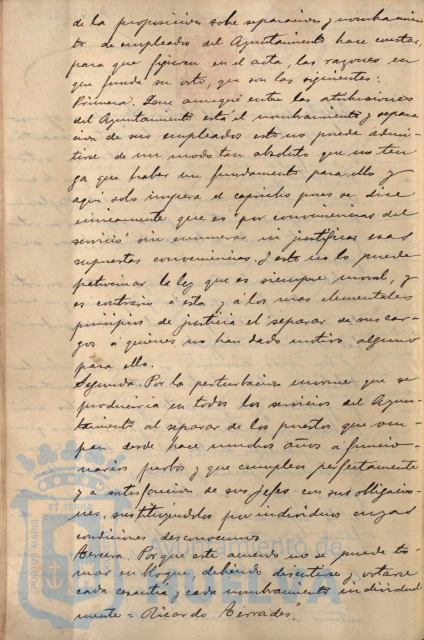 de la proposición sobre separación y nombramien
to de empleados del Ayuntamiento hace constar,
para que figuren en el acta, las razones en
que funda su voto, que son las siguientes:
Primera. Que aunque entre las atribuciones
del Ayuntamiento está el nombramiento y separa
ción de sus empleados esto no puede admi-
tirse de un modo tan absoluto que no ten
ga que haber un fundamento para ello y
aquí solo impera el capricho pues se dice
únicamente que es "por conveniencias del
servicio" sin enumerar ni justificar esas
supuestas conveniencias. Y esto no lo puede
patrocinar la ley que es siempre moral, y
es contrario a esta y a los mas elementales
principios de justicia el separar de sus car-
gos a quienes no han dado motivo alguno
para ello.
Segunda. Por la perturbación enorme que se
produciría en todos los servicios del Ayun-
tamiento al separar de los puestos que ocu-
pan desde hace muchos años a funcio-
narios probos y que cumplen perfectamente
y a satisfacción de sus jefes con sus obligacio-
nes, sustituyéndolos por individuos cuyas
condiciones desconocemos
Tercera. Porque este acuerdo no se puede to-
mar en bloque, debiendo discutirse y votarse
cada cesantía y cada nombramiento individual
mente = Ricardo Terrades".
PORTUS MARIS
ET TERRAE